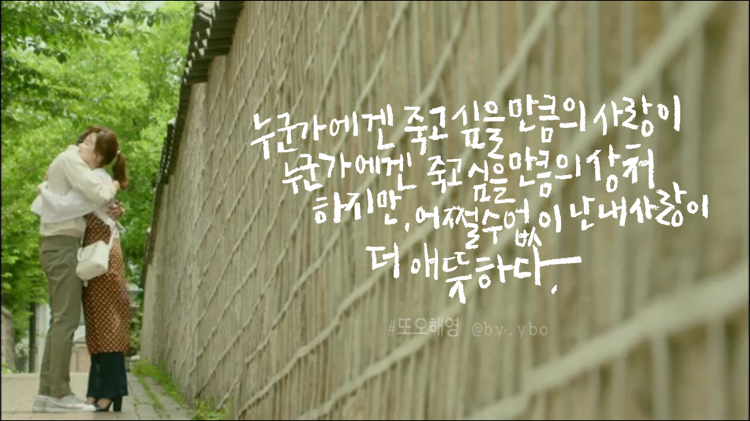 누군가에겐 죽고싶을만큼의 사랑이
누군가에겐 죽고싶을만큼의 상처
하지만, 어쩔수없이 난 내사랑이
더 애뜻하다.
#또오해영 @by.ybo